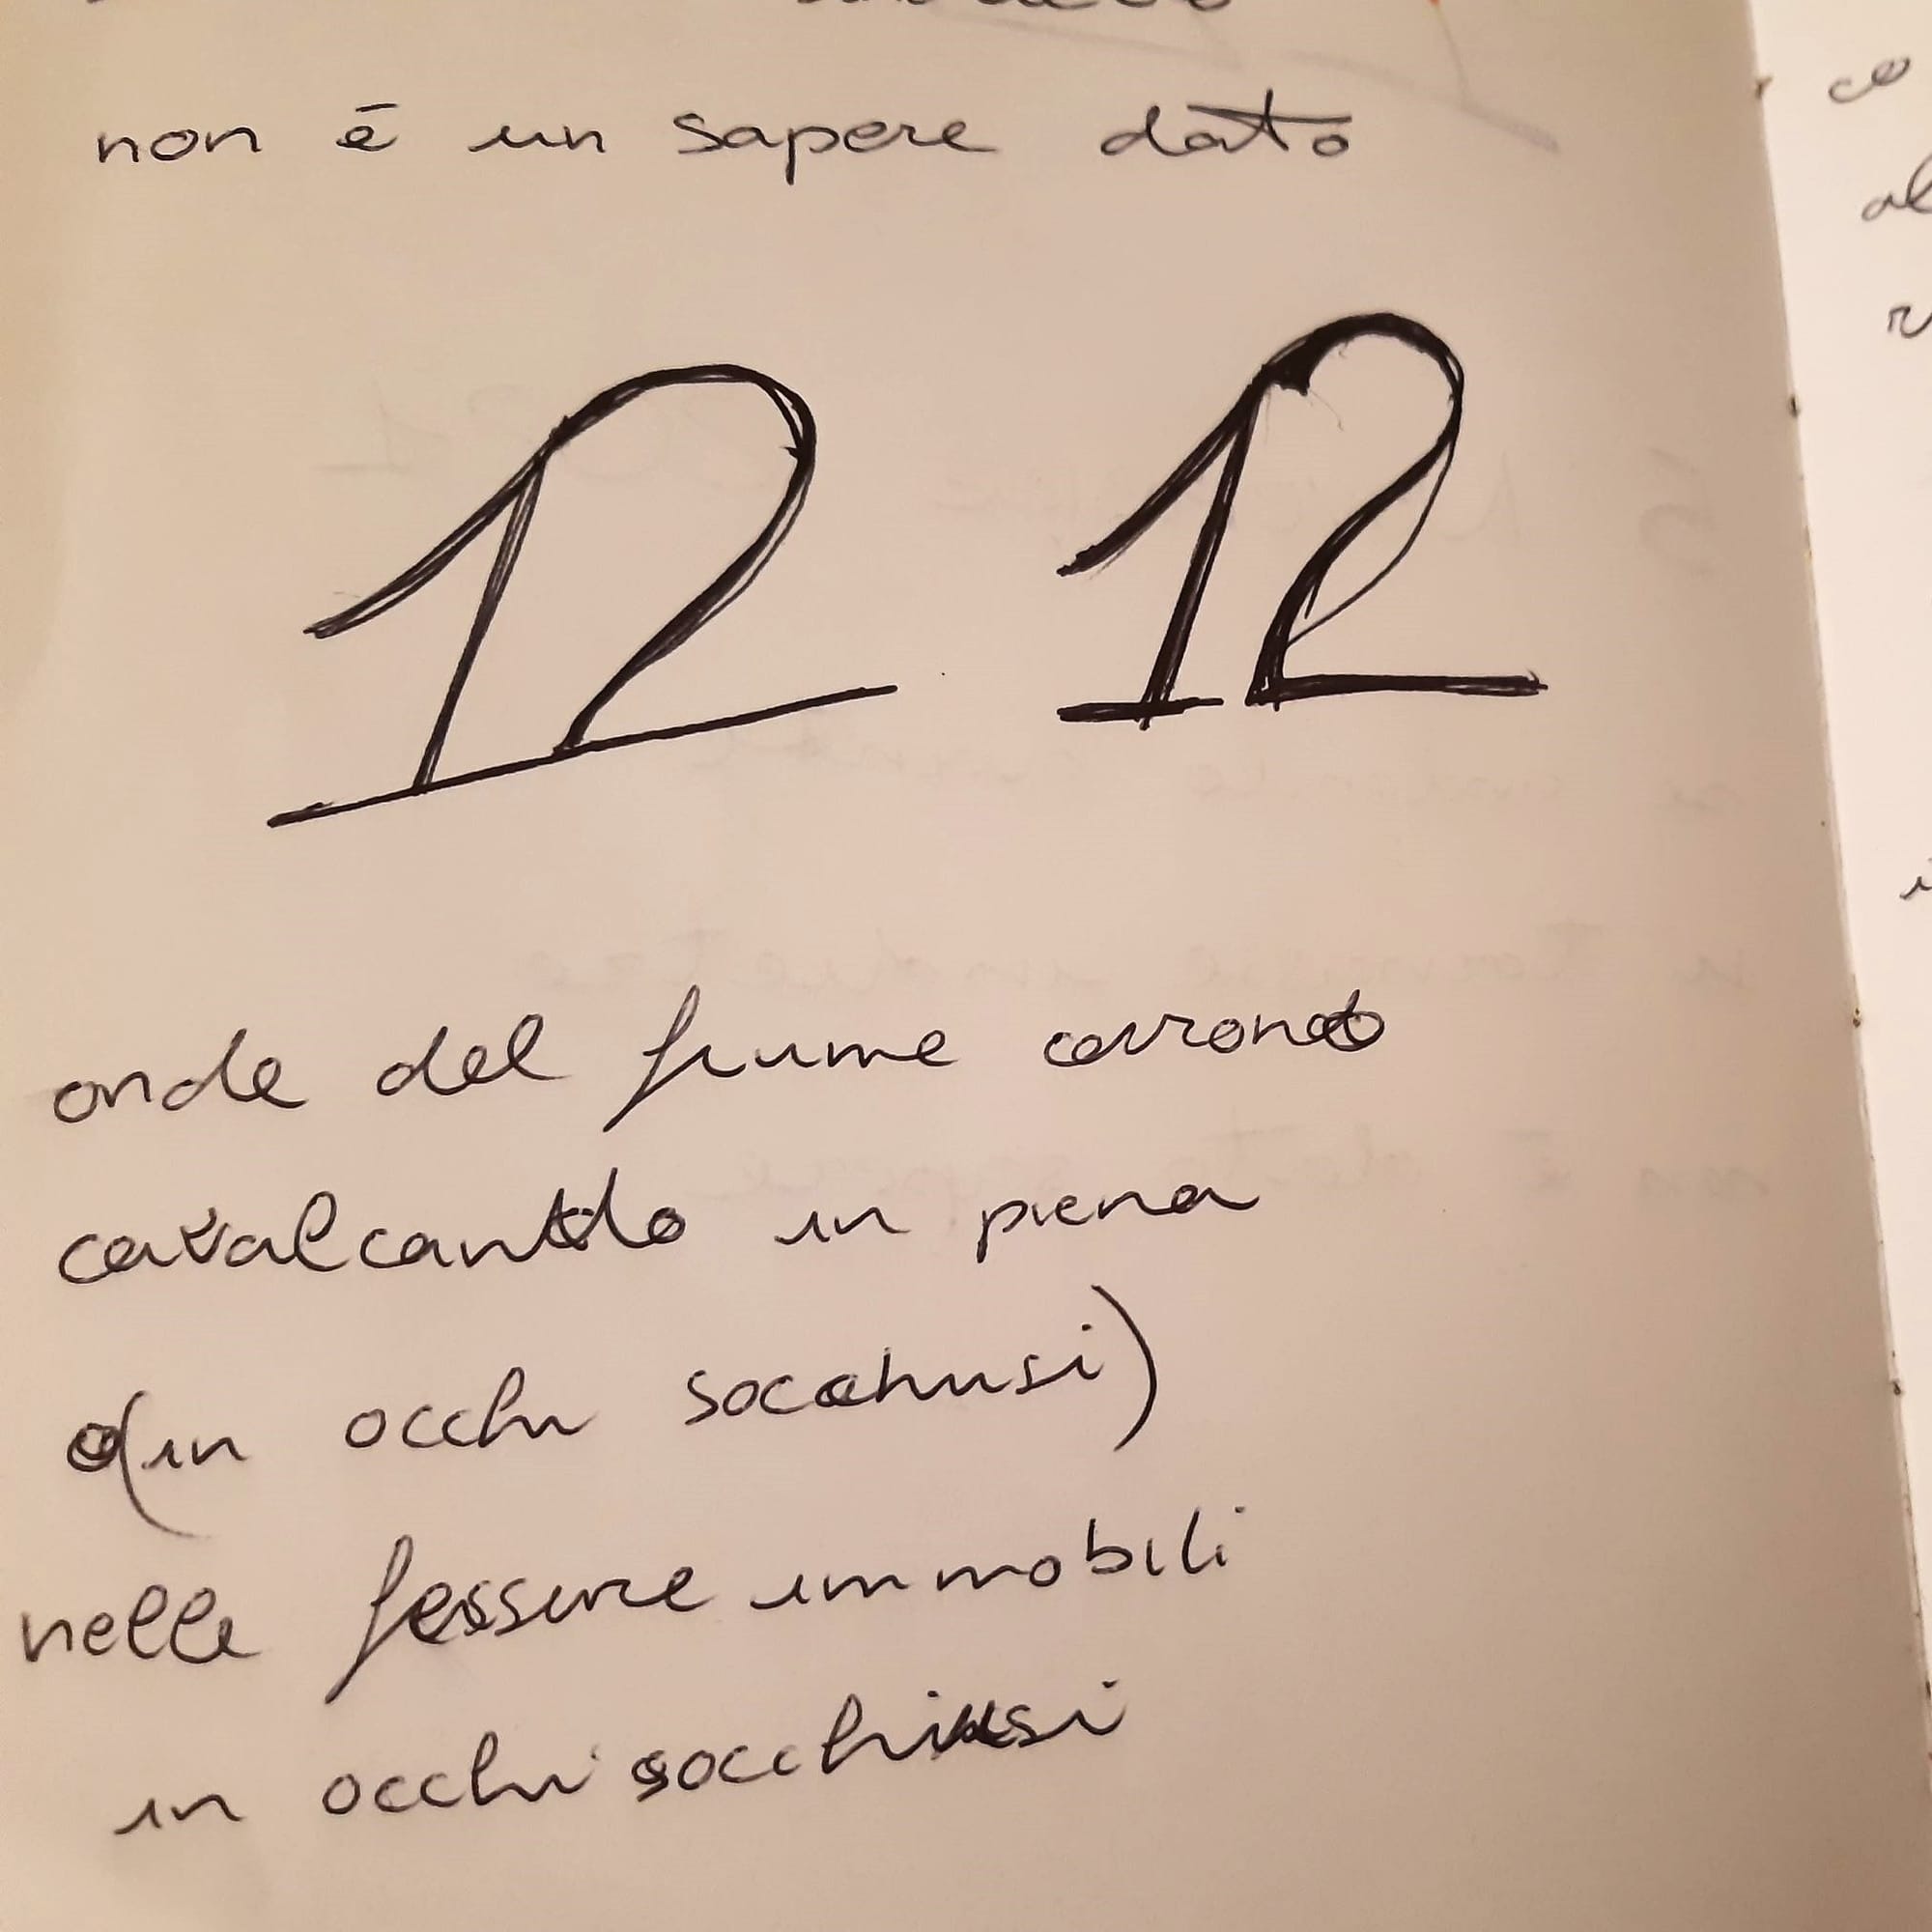 non è un sapere dato
12 12
onde del fiume corrono
cavalcando in piena
(in occhi socchiusi)
nelle fessure immobili
in occhi socchiusi